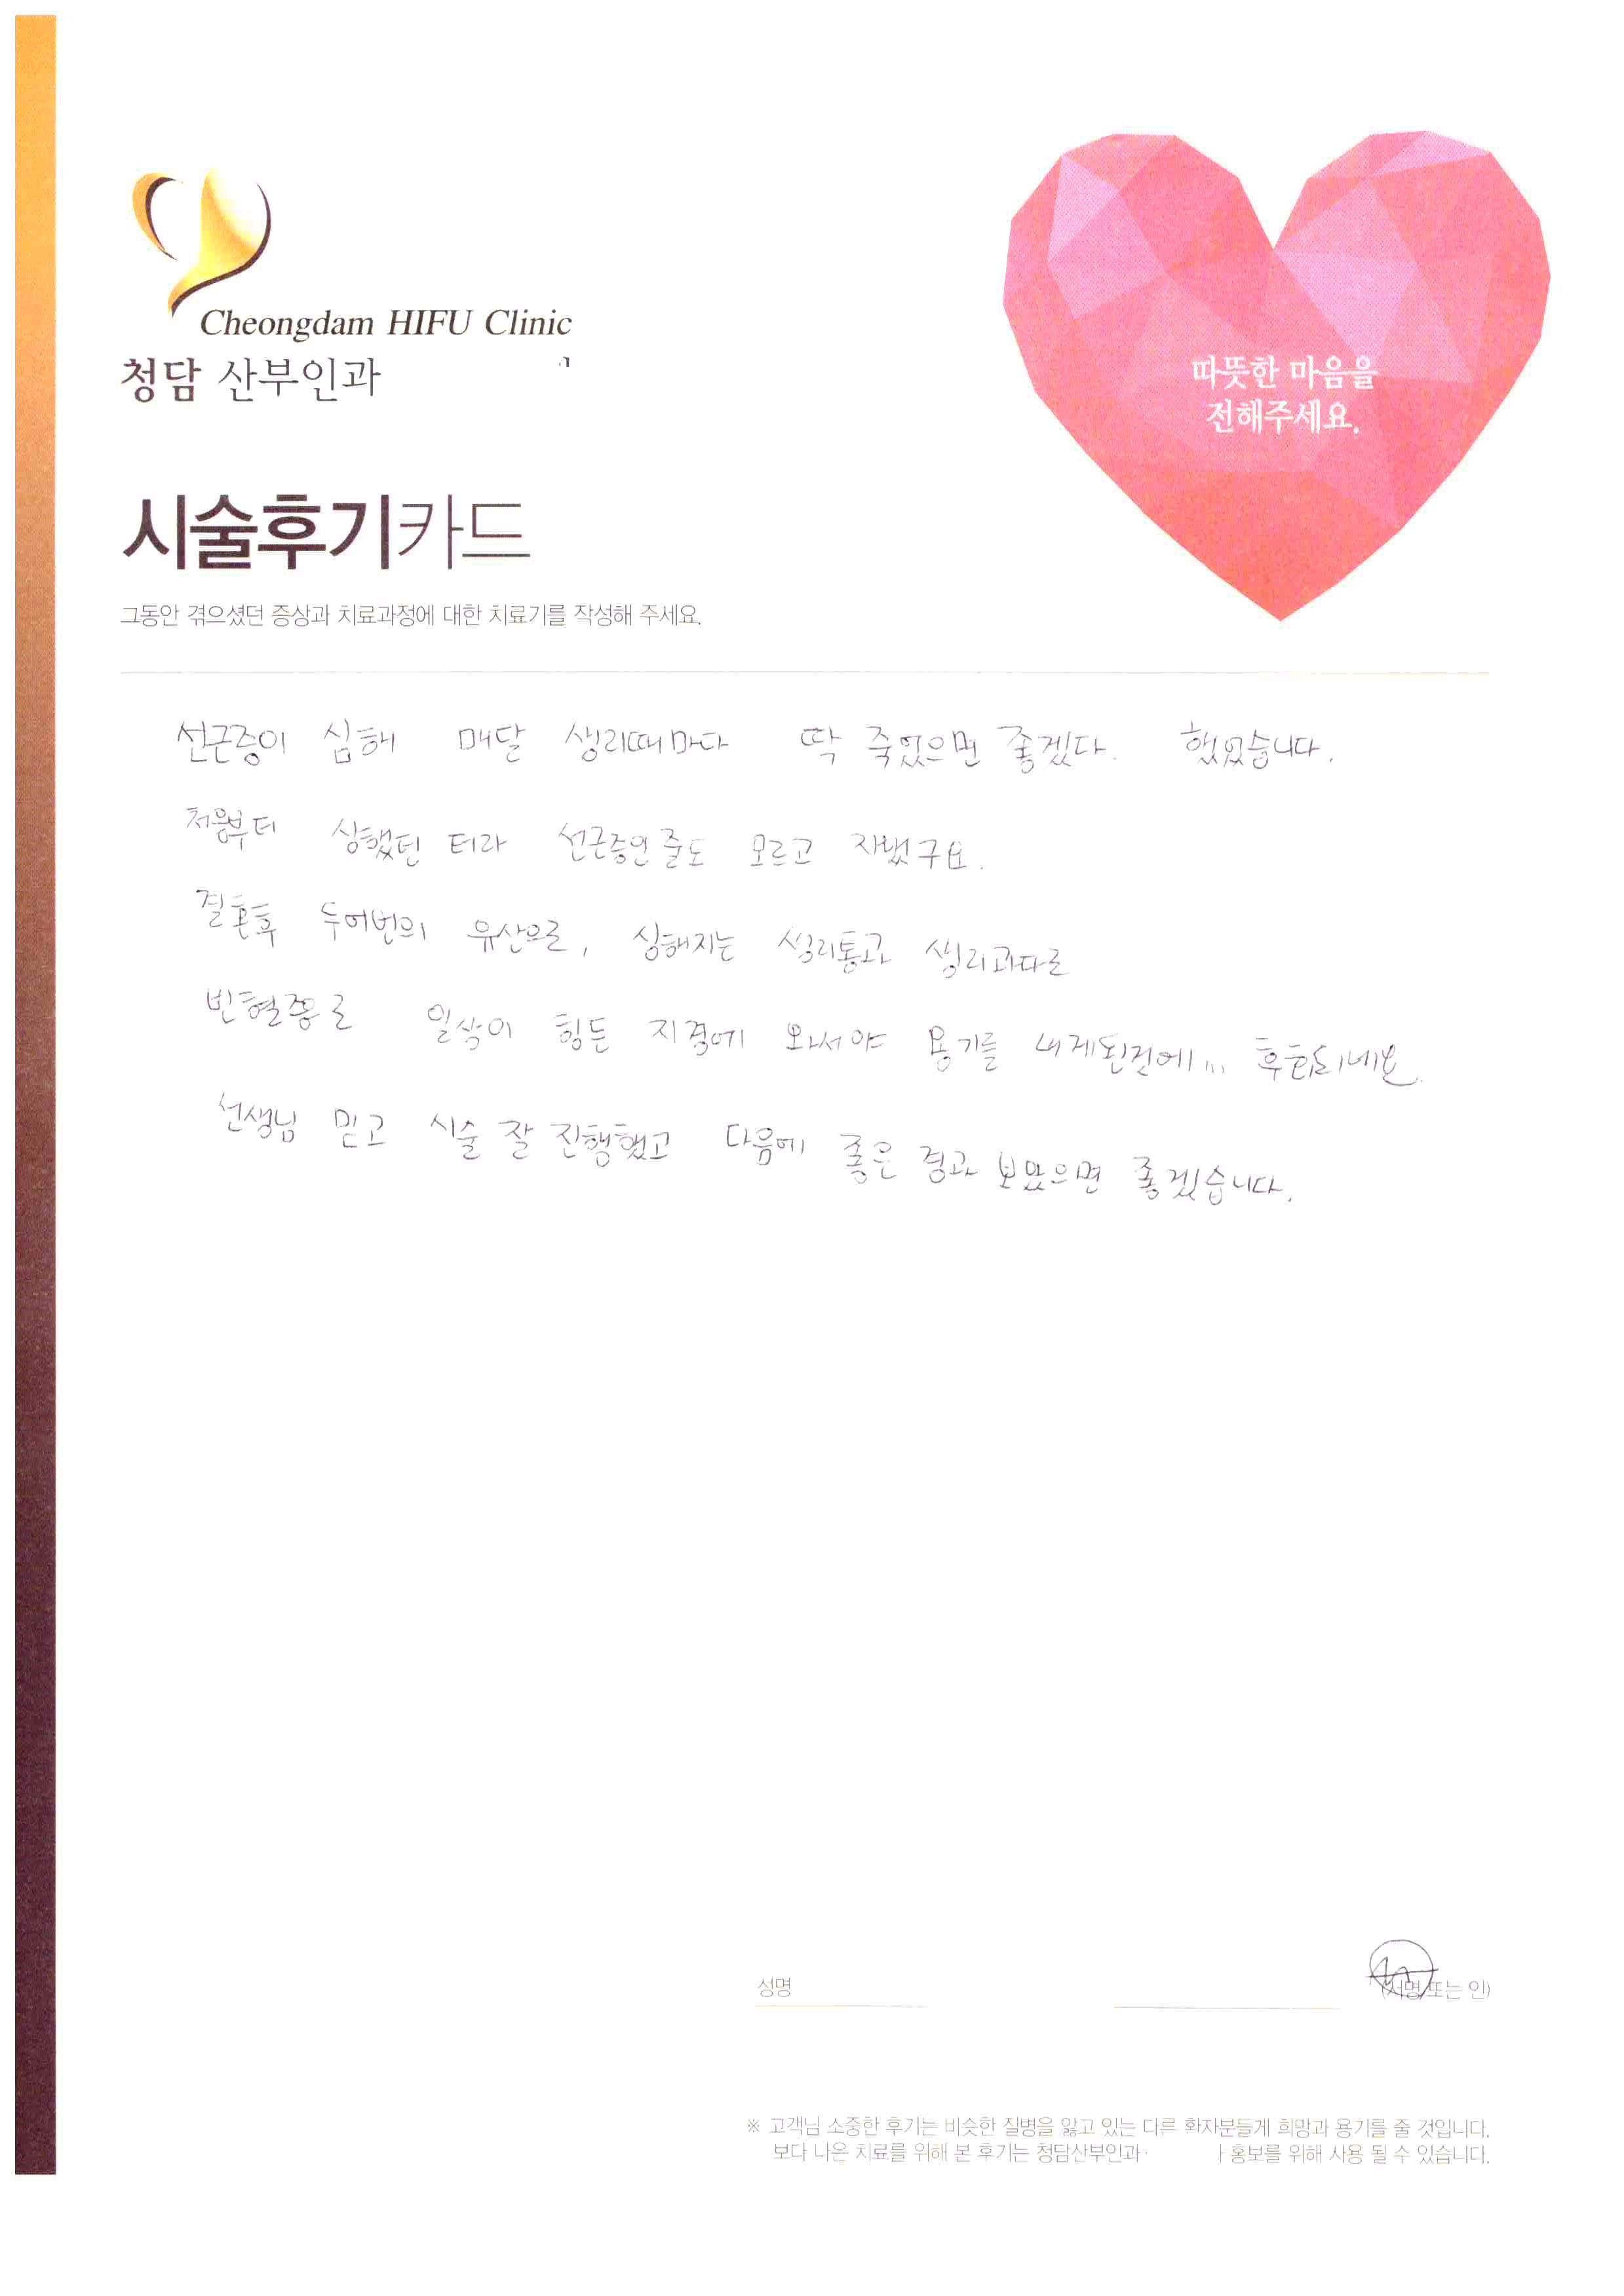 Cheongdam HIFU Clinic
청담 산부인과
따뜻한 마음을
전해주세요.
시술후기카드
그동안 겪으셨던 증상과 치료과정에 대한 치료기를 작성해 주세요.
선근증이 심해 매달 생리때마다 딱 죽었으면 좋겠다. 했었습니다.
처음부터 심했던 터라 선근증인 줄도 모르고 지냈구요.
결혼후 두어번의 유산으로, 심해지는 생리통과 생리과다로
빈혈증로 일상이 힘든 지경에 와서야 용기를 내게된건에... 후회되네요.
선생님 믿고 시술 잘 진행했고 다음에 좋은 경과 보았으면 좋겠습니다.
성명
(서명 또는 인)
※ 고객님 소중한 후기는 비슷한 질병을 앓고 있는 다른 환자분들게 희망과 용기를 줄 것입니다.
보다 나은 치료를 위해 본 후기는 청담산부인과 홍보를 위해 사용 될 수 있습니다.